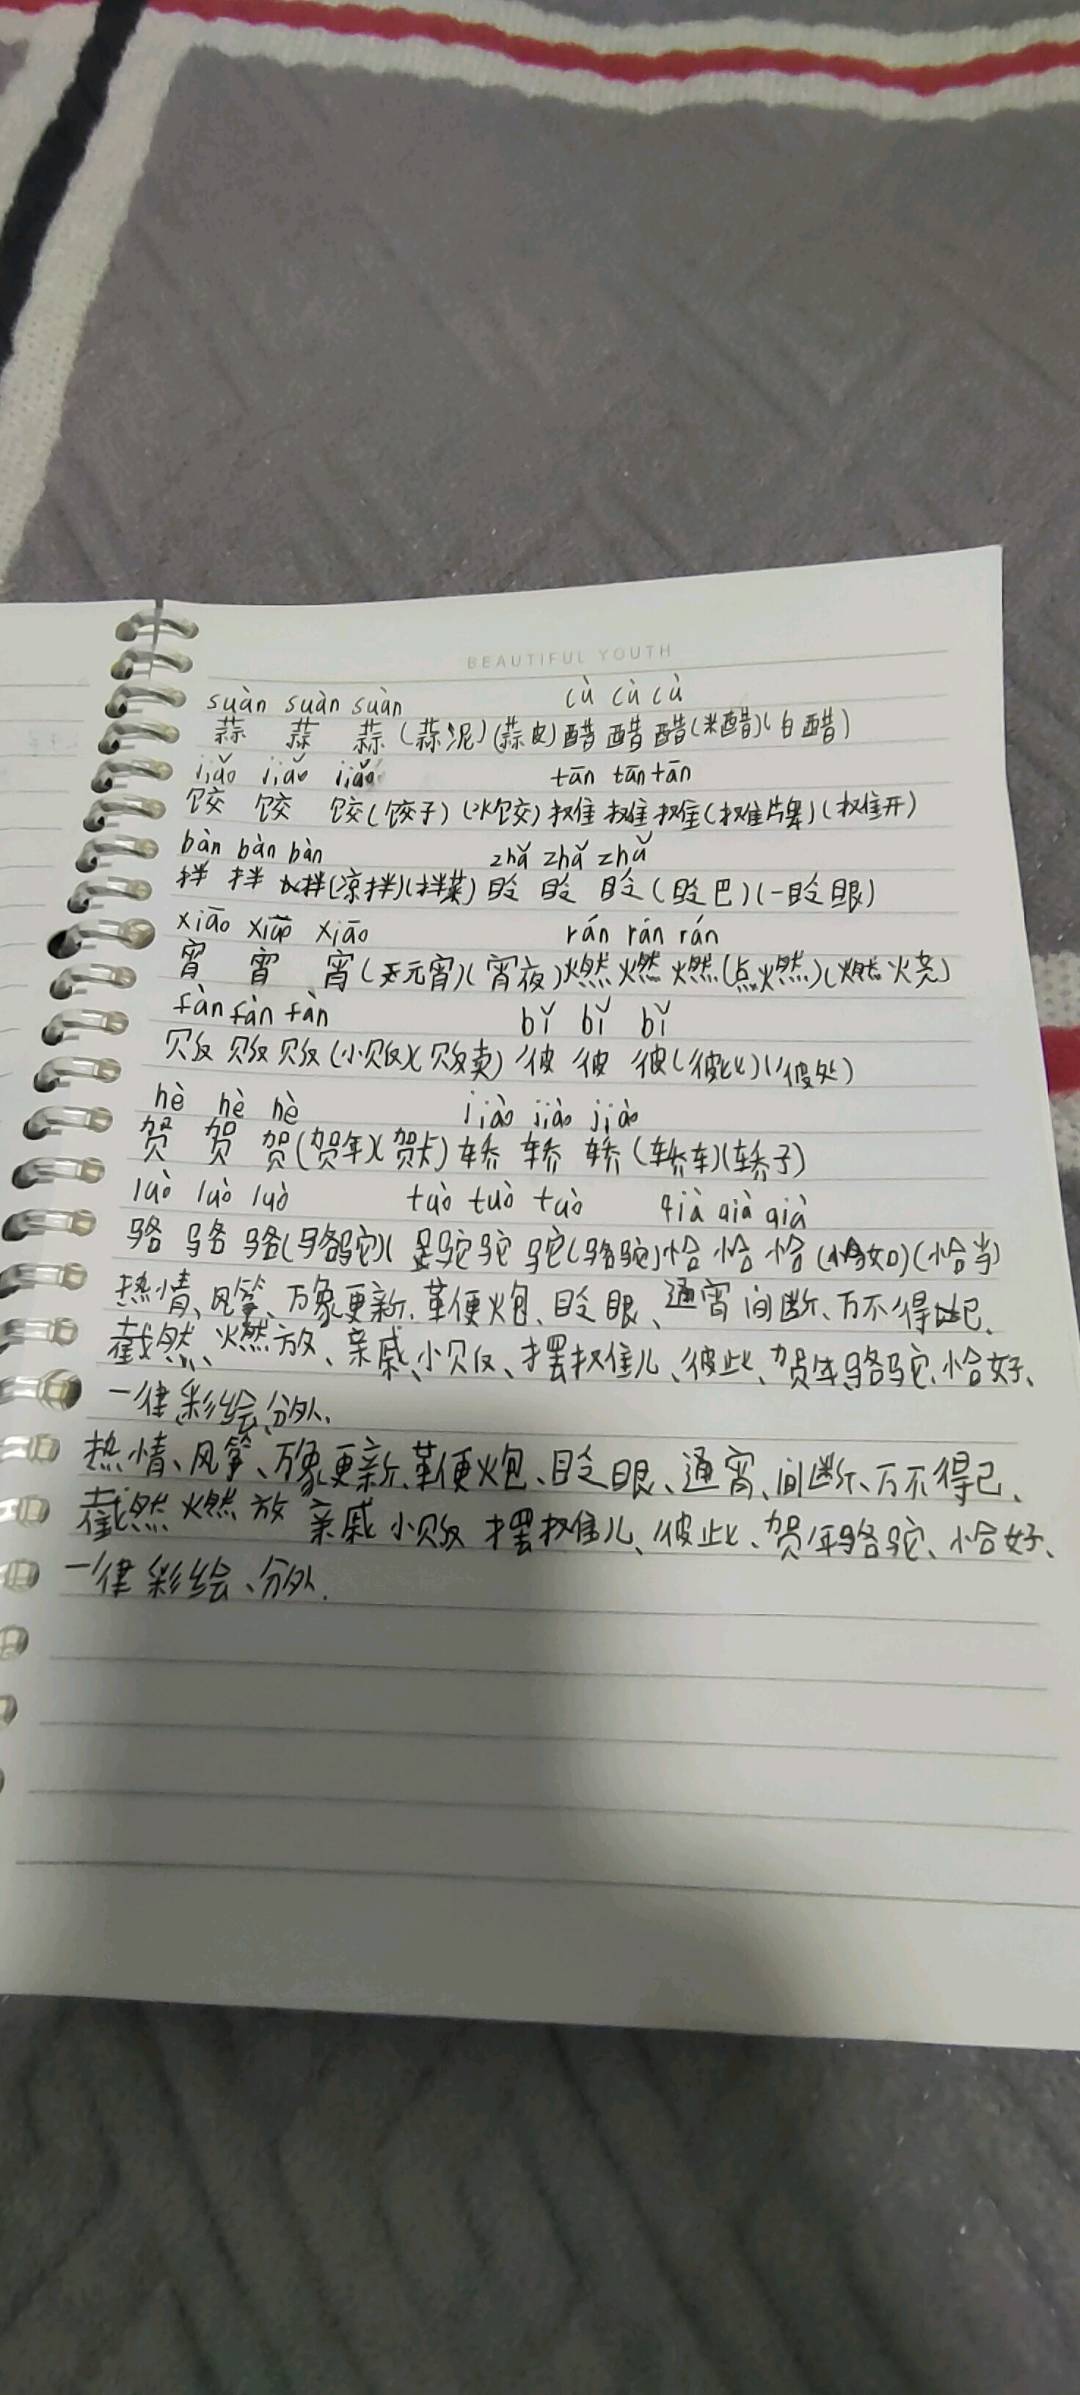 BEAUTIFUL YOUTH
suàn suàn suàn cù cù cù
蒜 蒜 蒜(蒜泥)(蒜皮)醋 醋 醋(米醋)(白醋)
jiǎo jiǎo jiǎo tān tān tān
饺 饺 饺(饺子)(水饺)摊 摊 摊(摊牌)(摊开)
bàn bàn bàn zhǎ zhǎ zhǎ
拌 拌 拌(凉拌)(拌菜)眨 眨 眨(眨巴)(一眨眼)
xiāo xiāo xiāo rán rán rán
宵 宵 宵(元宵)(宵夜)燃 燃 燃(点燃)(燃烧)
fàn fàn fàn bǐ bǐ bǐ
贩 贩 贩(小贩)(贩卖)彼 彼 彼(彼此)(彼处)
hè hè hè jiào jiào jiào
贺 贺 贺(贺年)(贺卡)轿 轿 轿(轿车)(轿子)
luò luò luò tuò tuò tuò qià qià qià
骆 骆 骆(骆驼)( 驼 驼 驼(骆驼)恰 恰 恰(恰如)(恰当)
热情、风筝、万象更新、鞭炮、眨眼、通宵 间断、万不得已、
截然、燃放、亲戚、小贩、摆摊儿、彼此、贺年、骆驼、恰好、
一律、彩绘、分外、
热情、风筝、万象更新、鞭炮、眨眼、通宵、间断、万不得已、
截然 燃放 亲戚 小贩 摆摊儿、彼此、贺年骆驼、恰好、
一律 彩绘、分外.